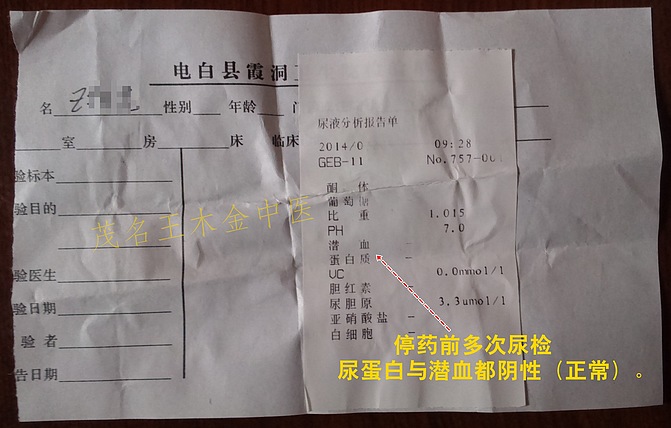 电白县霞洞
名 性别 年龄
室 房 床 临床
验标本
验目的
验医生
验日期
验者
告日期
尿液分析报告单
2014/0 09:28
GEB-11 No.757-00
酮体
葡萄糖
比重 1.015
PH 7.0
潜血 -
蛋白质 -
VC 0.0mmol/l
胆红素 -
尿胆原 3.3umol/l
亚硝酸盐 -
白细胞 -
茂名王木金中医
停药前多次尿检
尿蛋白与潜血都阴性（正常）。